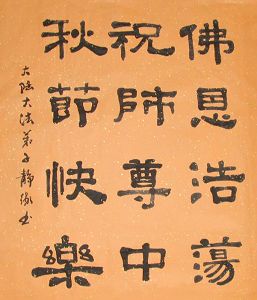 佛恩浩蕩
祝師尊中
秋節快樂
大陸大法弟子靜緣書